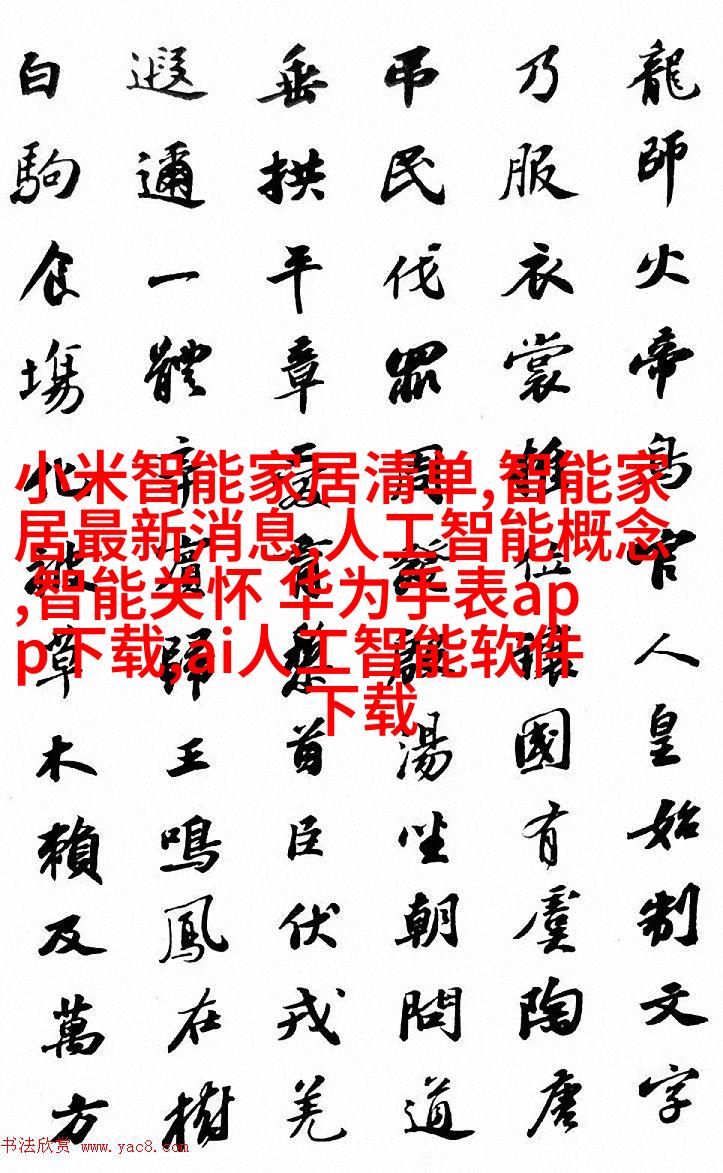 龍師火帝鳥官人皇始制文字
乃服衣裳推位讓國有虞陶唐
吊民伐罪周發殷湯坐朝問道
垂拱平章愛育黎首臣伏戎羌
遐邇一體率賓歸王鳴鳳在樹
白駒食塲化被草木賴及萬方
小米智能家居清单,智能家
居最新消息,人工智能概念
,智能关怀 华为手表ap
p下载,ai人工智能软件
下载
书法欣赏 www.yac8.com